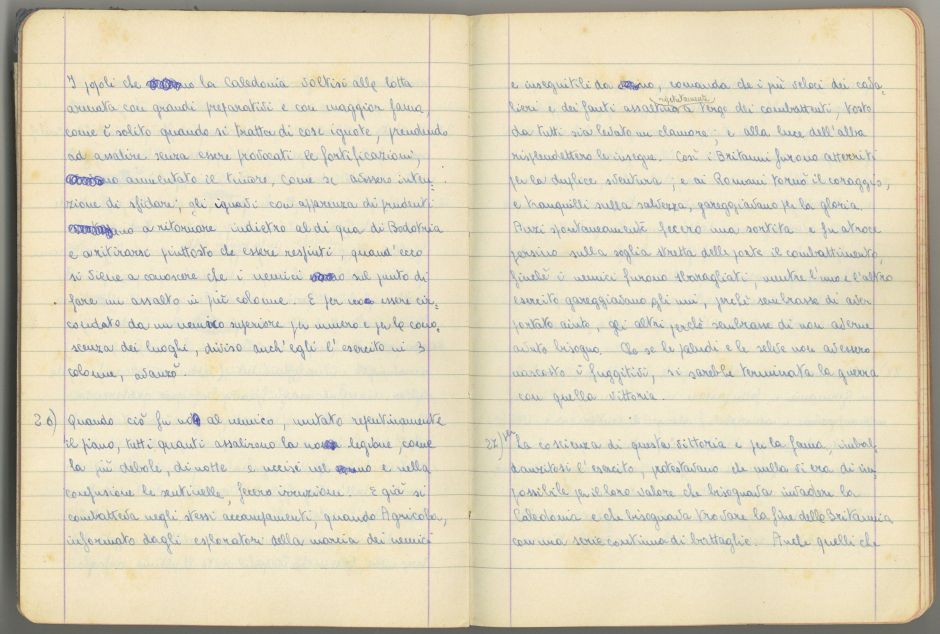 I popoli che la Caledonia voltisi alla lotta
armata con grandi preparativi e con maggior fama
come è solito quando si tratta di cose ignote, prendendo
ad assalire senza essere provocati le fortificazioni,
aumentato il timore, come se avessero inten-
zione di sfidare; gli ignavi con apparenza di prudenti
a ritornare indietro al di qua di Bodotria
e a ritirarsi piuttosto che essere respinti, quand'ecco
si viene a conoscere che i nemici sul punto di
fare un assalto in più colonne. E per non essere cir-
condato da un nemico superiore per numero e per la cono-
scenza dei luoghi, diviso anch'egli l'esercito in 3
colonne, avanzò.
26) Quando ciò fu al nemico, mutato repentinamente
il piano, tutti quanti assalirono la nona legione, come
la più debole, di notte e uccise nel e nella
confusione le sentinelle, fecero irruzione. E già si
combatteva negli stessi accampamenti, quando Agricola,
informato dagli esploratori della marcia dei nemici
e inseguitili da, comanda che i più veloci dei cava-
lieri e dei fanti assaltino ripetutamente a tergo dei combattenti, tosto
da tutti sia levato un clamore; e alla luce dell'alba
risplendettero le insegne. Così i Britanni furono atterriti
per la duplice sventura; e ai Romani tornò il coraggio,
e tranquilli sulla salvezza, gareggiavano per la gloria.
Anzi spontaneamente fecero una sortita e fu atroce
persino sulla soglia stretta delle porte il combattimento,
finché i nemici furono sbaragliati, mentre l'uno e l'altro
esercito gareggiavano gli uni, perché sembrasse di aver
portato aiuto, gli altri perché sembrasse di non averne
avuto bisogno. Che se le paludi e le selve non avessero
nascosto i fuggitivi, si sarebbe terminata la guerra
con quella vittoria.
27) per la coscienza di questa vittoria e per la fama, imbal-
danzitosi l'esercito, protestavano che nulla vi era di im-
possibile per il loro valore che bisognava invadere la
Caledonia e che bisognava trovare la fine della Britannia
con una serie continua di battaglie. Anche quelli che